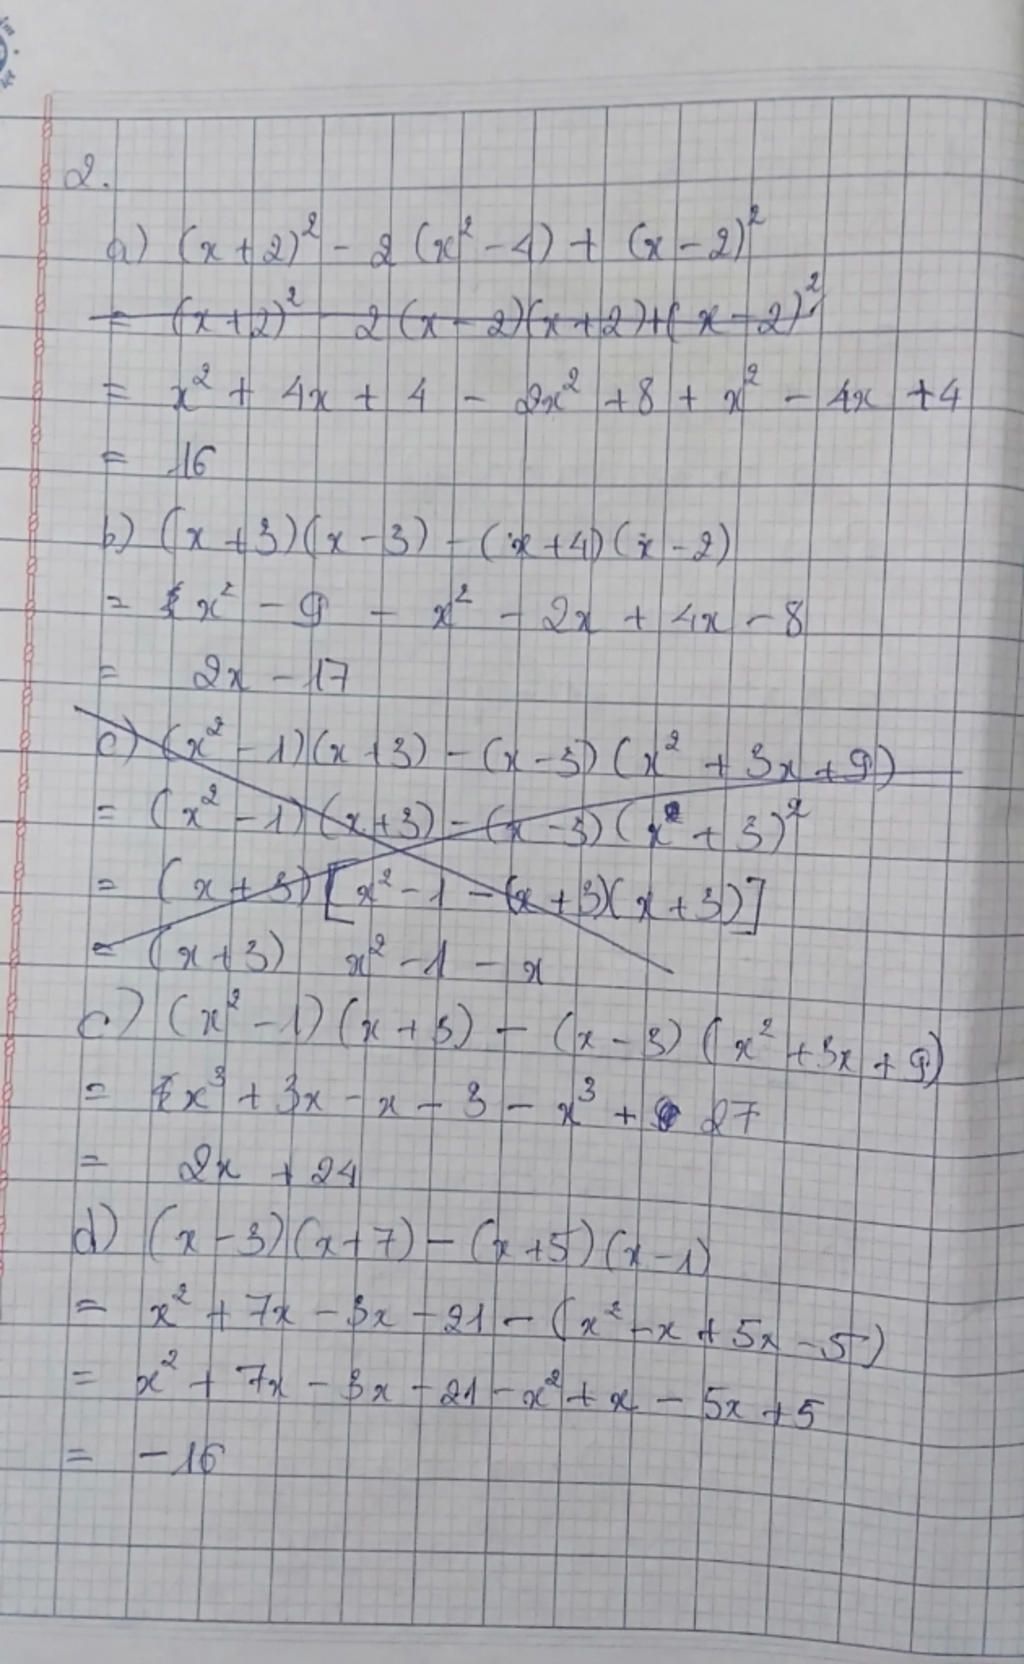 2.
a) (x+2)² - 2(x² - 4) + (x - 2)²
= (x+2)² - 2(x-2)(x+2)+(x-2)²
= x² + 4x + 4 - 2x² + 8 + x² - 4x + 4
= 16
b) (x+3)(x-3) - (x+4)(x-2)
= x² - 9 - x² - 2x + 4x - 8
= 2x - 17
c) (x² - 1)(x+3) - (x-3)(x² + 3x + 9)
= (x² - 1)(x+3) - (x-3)(x + 3)²
= (x+3)[x² - 1 - (x+3)(x+3)]
= (x+3) x² - 1 - x
c) (x² - 1)(x+3) - (x-3)(x² + 3x + 9)
= x³ + 3x - x - 3 - x³ + 27
= 2x + 24
d) (x-3)(x+7) - (x+5)(x-1)
= x² + 7x - 3x - 21 - (x² - x + 5x - 5)
= x² + 7x - 3x - 21 - x² + x - 5x + 5
= -16